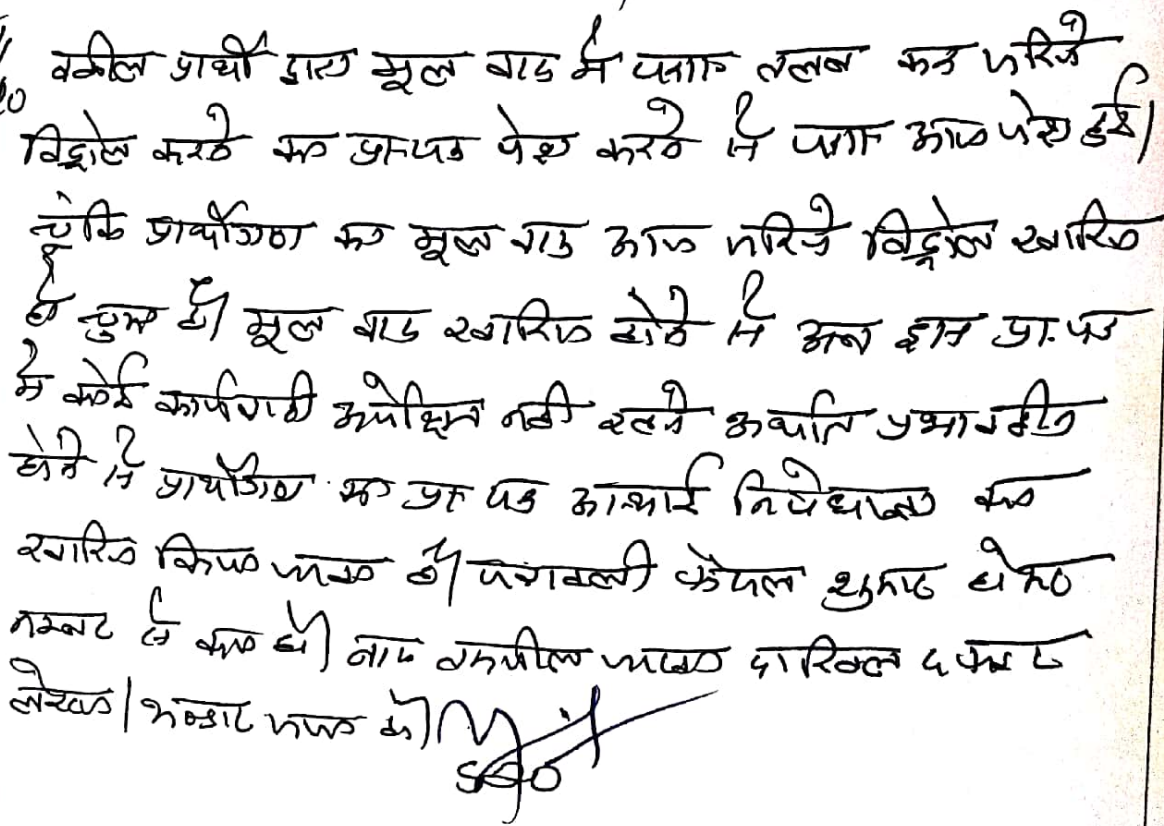 वकील प्रार्थी द्वारा मूल वाद में पत्रा० तलब कर जरिये
विड्रोल करने का प्रा०पत्र पेश करने से पत्रा० आज पेश हुई।
चूंकि प्रार्थीगण का मूल वाद आज जरिये विड्रोल खारिज
हो चुका है। मूल वाद खारिज होने से अब इस प्रा.पत्र
में कोई कार्यवाही अपेक्षित नहीं रहने अर्थात प्रभावहीन
होने से प्रार्थीगण का प्रा० पत्र अस्थाई निषेधाज्ञा का
खारिज किया जाता है। पत्रावली फैसल शुमार होकर
नम्बर से कम हो। बाद तकमील जाब्ता दाखिल दफ्तर
लेख्या। भण्डार जाया हो।
SDO